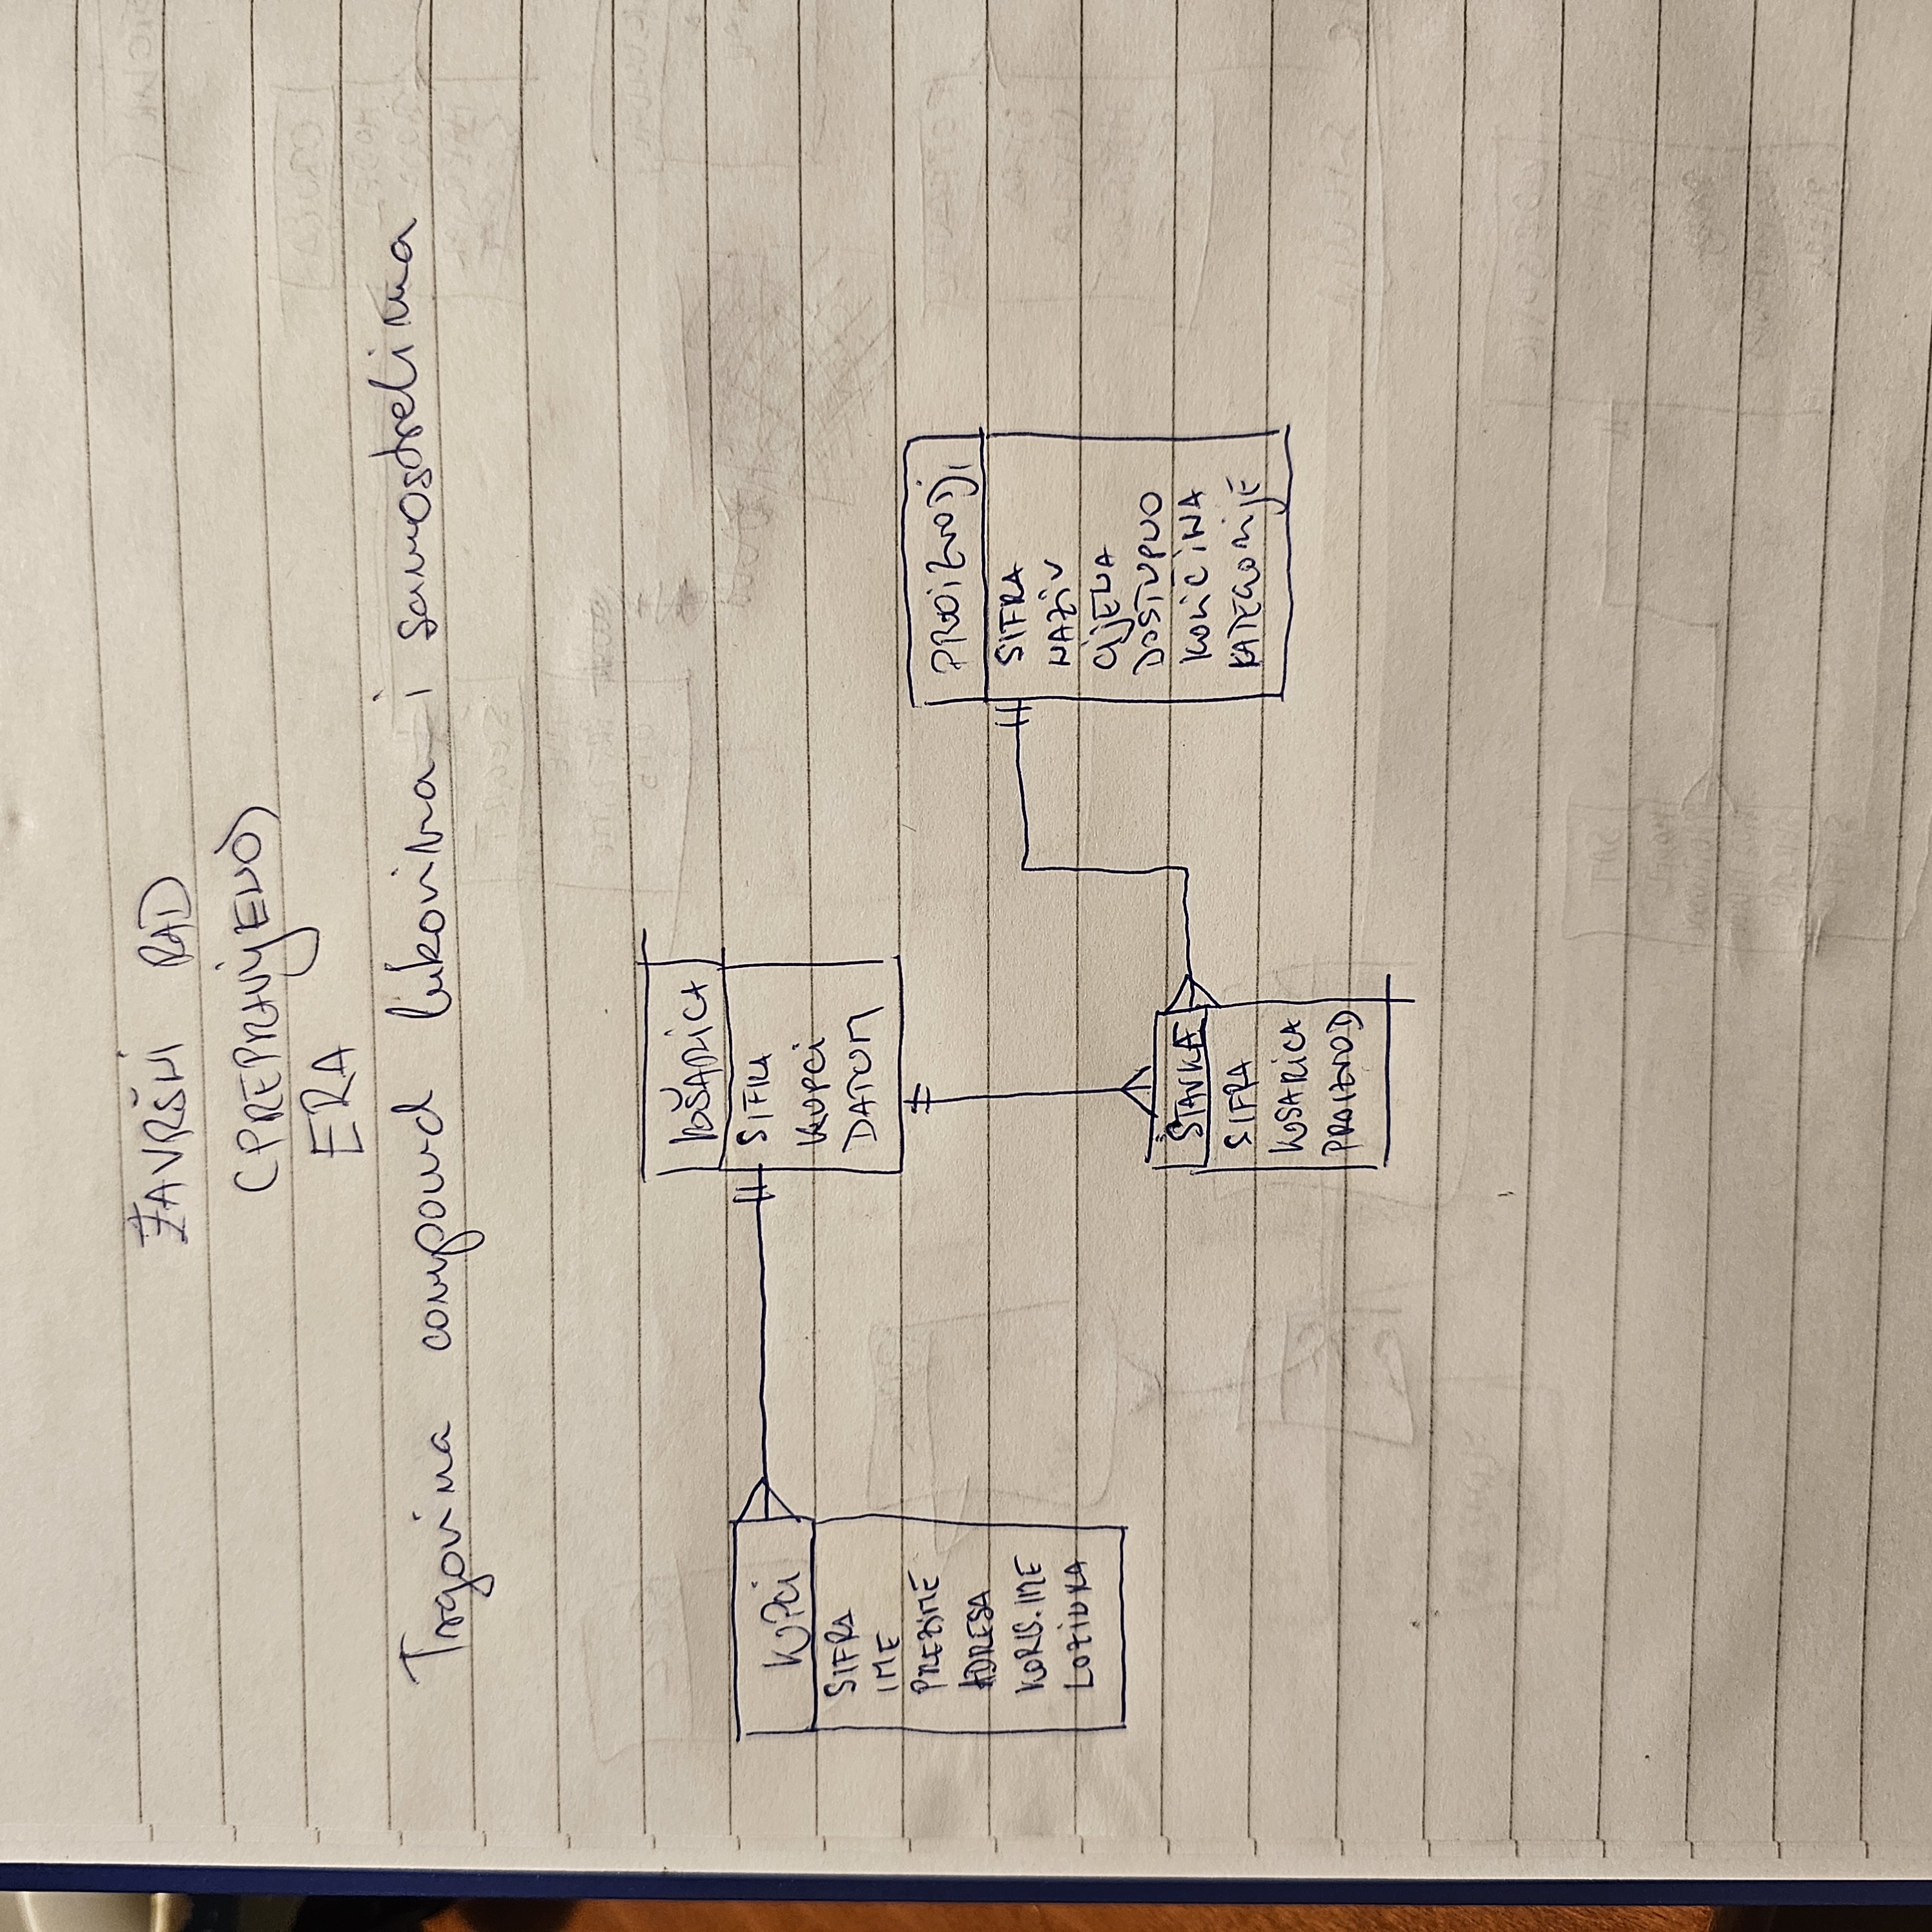 ZAVRŠNI RAD
(PREPRAVljENO)
ERA
Trgovina compound lukovima i samostrelima
KUPCI
SIFRA
IME
PREZIME
ADRESA
KORIS.IME
LOZINKA
KOŠARICA
SIFRA
KUPCI
DATUM
STAVKE
SIFRA
KOSARICA
PROIZVOD
PROIZVODI
SIFRA
NAZIV
CIJENA
DOSTUPNO
KOLIČINA
KATEGORIJE